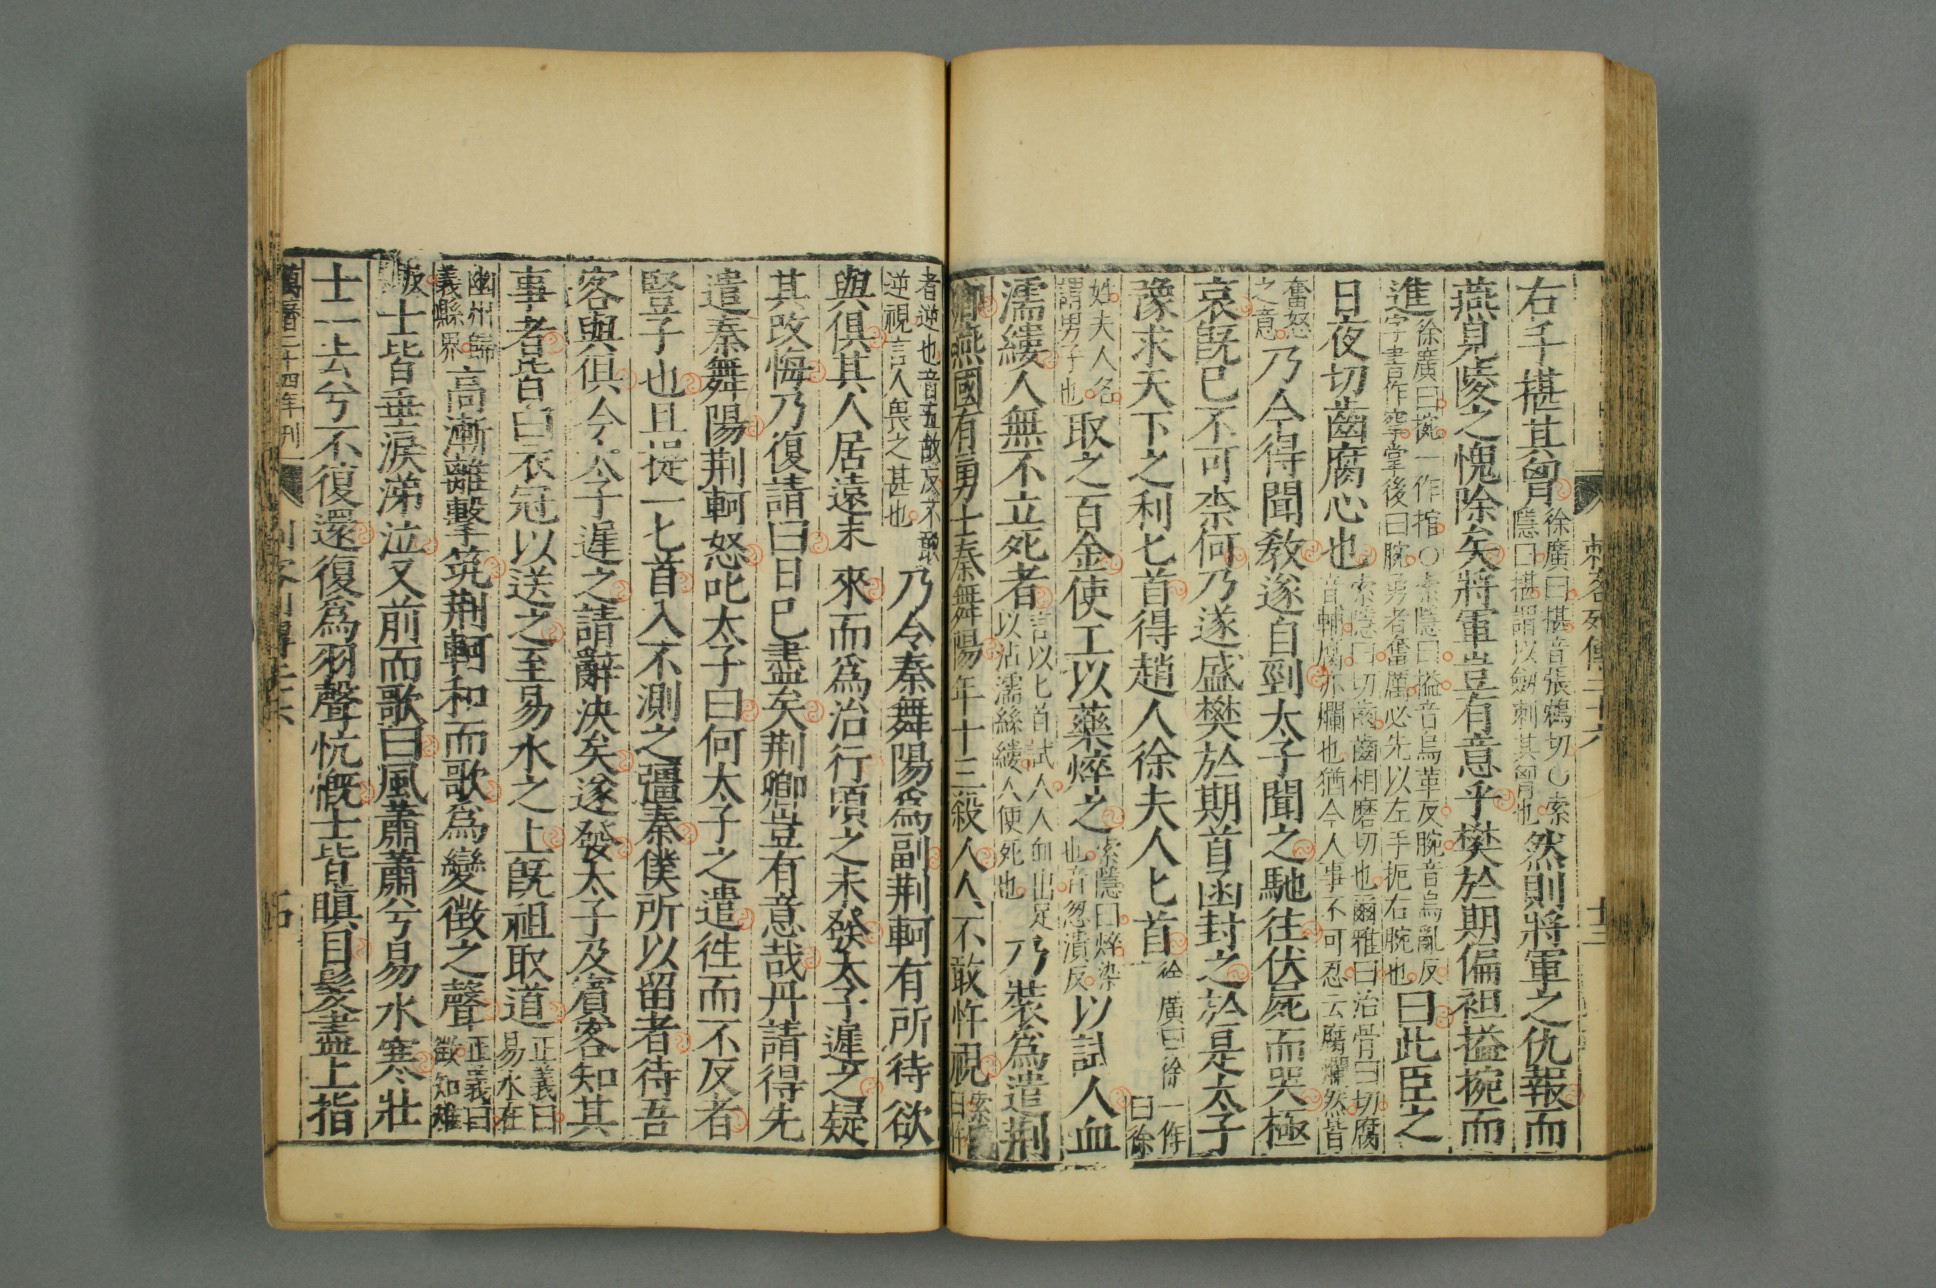 刺客列傳二十六 十三
右手揕其胷徐廣曰揕音張鴆切○索隱曰揕謂以劍刺其胷也然則將軍之仇報而
燕見陵之愧除矣將軍豈有意乎樊於期偏袒搤捥而
進徐廣曰捥一作㨉○索隱曰搤音烏革反腕音烏亂反字書作掔掌後曰腕勇者奮厲必先以左手扼右腕也曰此臣之
日夜切齒腐心也索隱曰切齒齒相磨切也爾雅曰治骨曰切腐音輔腐亦爛也猶今人事不可忍云腐爛然皆
奮怒之意乃今得聞敎遂自剄太子聞之馳往伏屍而哭極
哀旣已不可柰何乃遂盛樊於期首函封之於是太子
豫求天下之利匕首得趙人徐夫人匕首徐廣曰徐一作
姓夫人名謂男子也取之百金使工以藥焠之索隱曰焠染也音忽潰反以試人血
濡縷人無不立死者言以匕首試人人血出足以沾濡絲縷人便死也乃裝爲遣荆
卿燕國有勇士秦舞陽年十三殺人人不敢忤視索隱曰忤
者逆也音五故反不敢逆視言人畏之甚也乃令秦舞陽爲副荆軻有所待欲
與俱其人居遠未來而爲治行頃之未發太子遲之疑
其改悔乃復請曰日已盡矣荆卿豈有意哉丹請得先
遣秦舞陽荆軻怒叱太子曰何太子之遣往而不反者
豎子也且提一匕首入不測之彊秦僕所以留者待吾
客與俱今太子遲之請辭決矣遂發太子及賓客知其
事者皆白衣冠以送之至易水之上旣祖取道正義曰易水在
幽州歸義縣界高漸離擊筑荆軻和而歌爲變徵之聲正義曰徵知雉
反士皆垂淚涕泣又前而歌曰風蕭蕭兮易水寒壯
士一去兮不復還復爲羽聲忼慨士皆瞋目髮盡上指
萬曆二十四年刊 列傳二十六